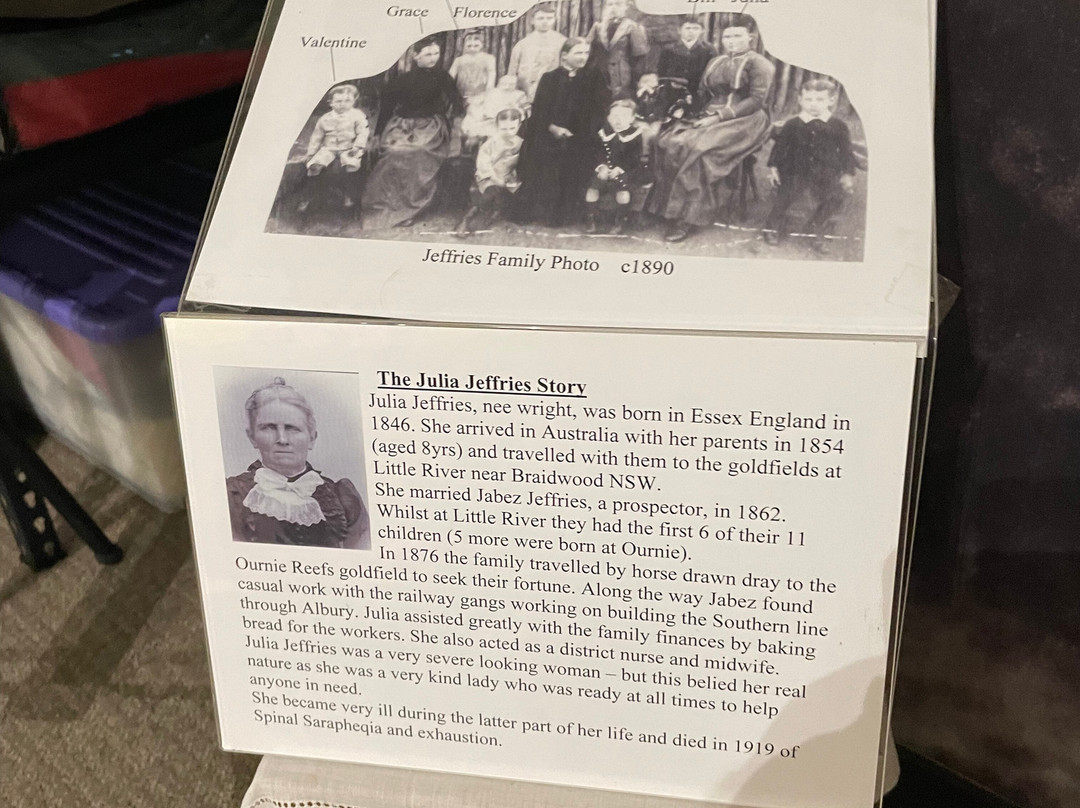 Grace Florence
Valentine
Jeffries Family Photo c1890
The Julia Jeffries Story
Julia Jeffries, nee wright, was born in Essex England in
1846. She arrived in Australia with her parents in 1854
(aged 8yrs) and travelled with them to the goldfields at
Little River near Braidwood NSW.
She married Jabez Jeffries, a prospector, in 1862.
Whilst at Little River they had the first 6 of their 11
children (5 more were born at Ournie).
In 1876 the family travelled by horse drawn dray to the
Ournie Reefs goldfield to seek their fortune. Along the way Jabez found
casual work with the railway gangs working on building the Southern line
through Albury. Julia assisted greatly with the family finances by baking
bread for the workers. She also acted as a district nurse and midwife.
Julia Jeffries was a very severe looking woman – but this belied her real
nature as she was a very kind lady who was ready at all times to help
anyone in need.
She became very ill during the latter part of her life and died in 1919 of
Spinal Sarapheqia and exhaustion.